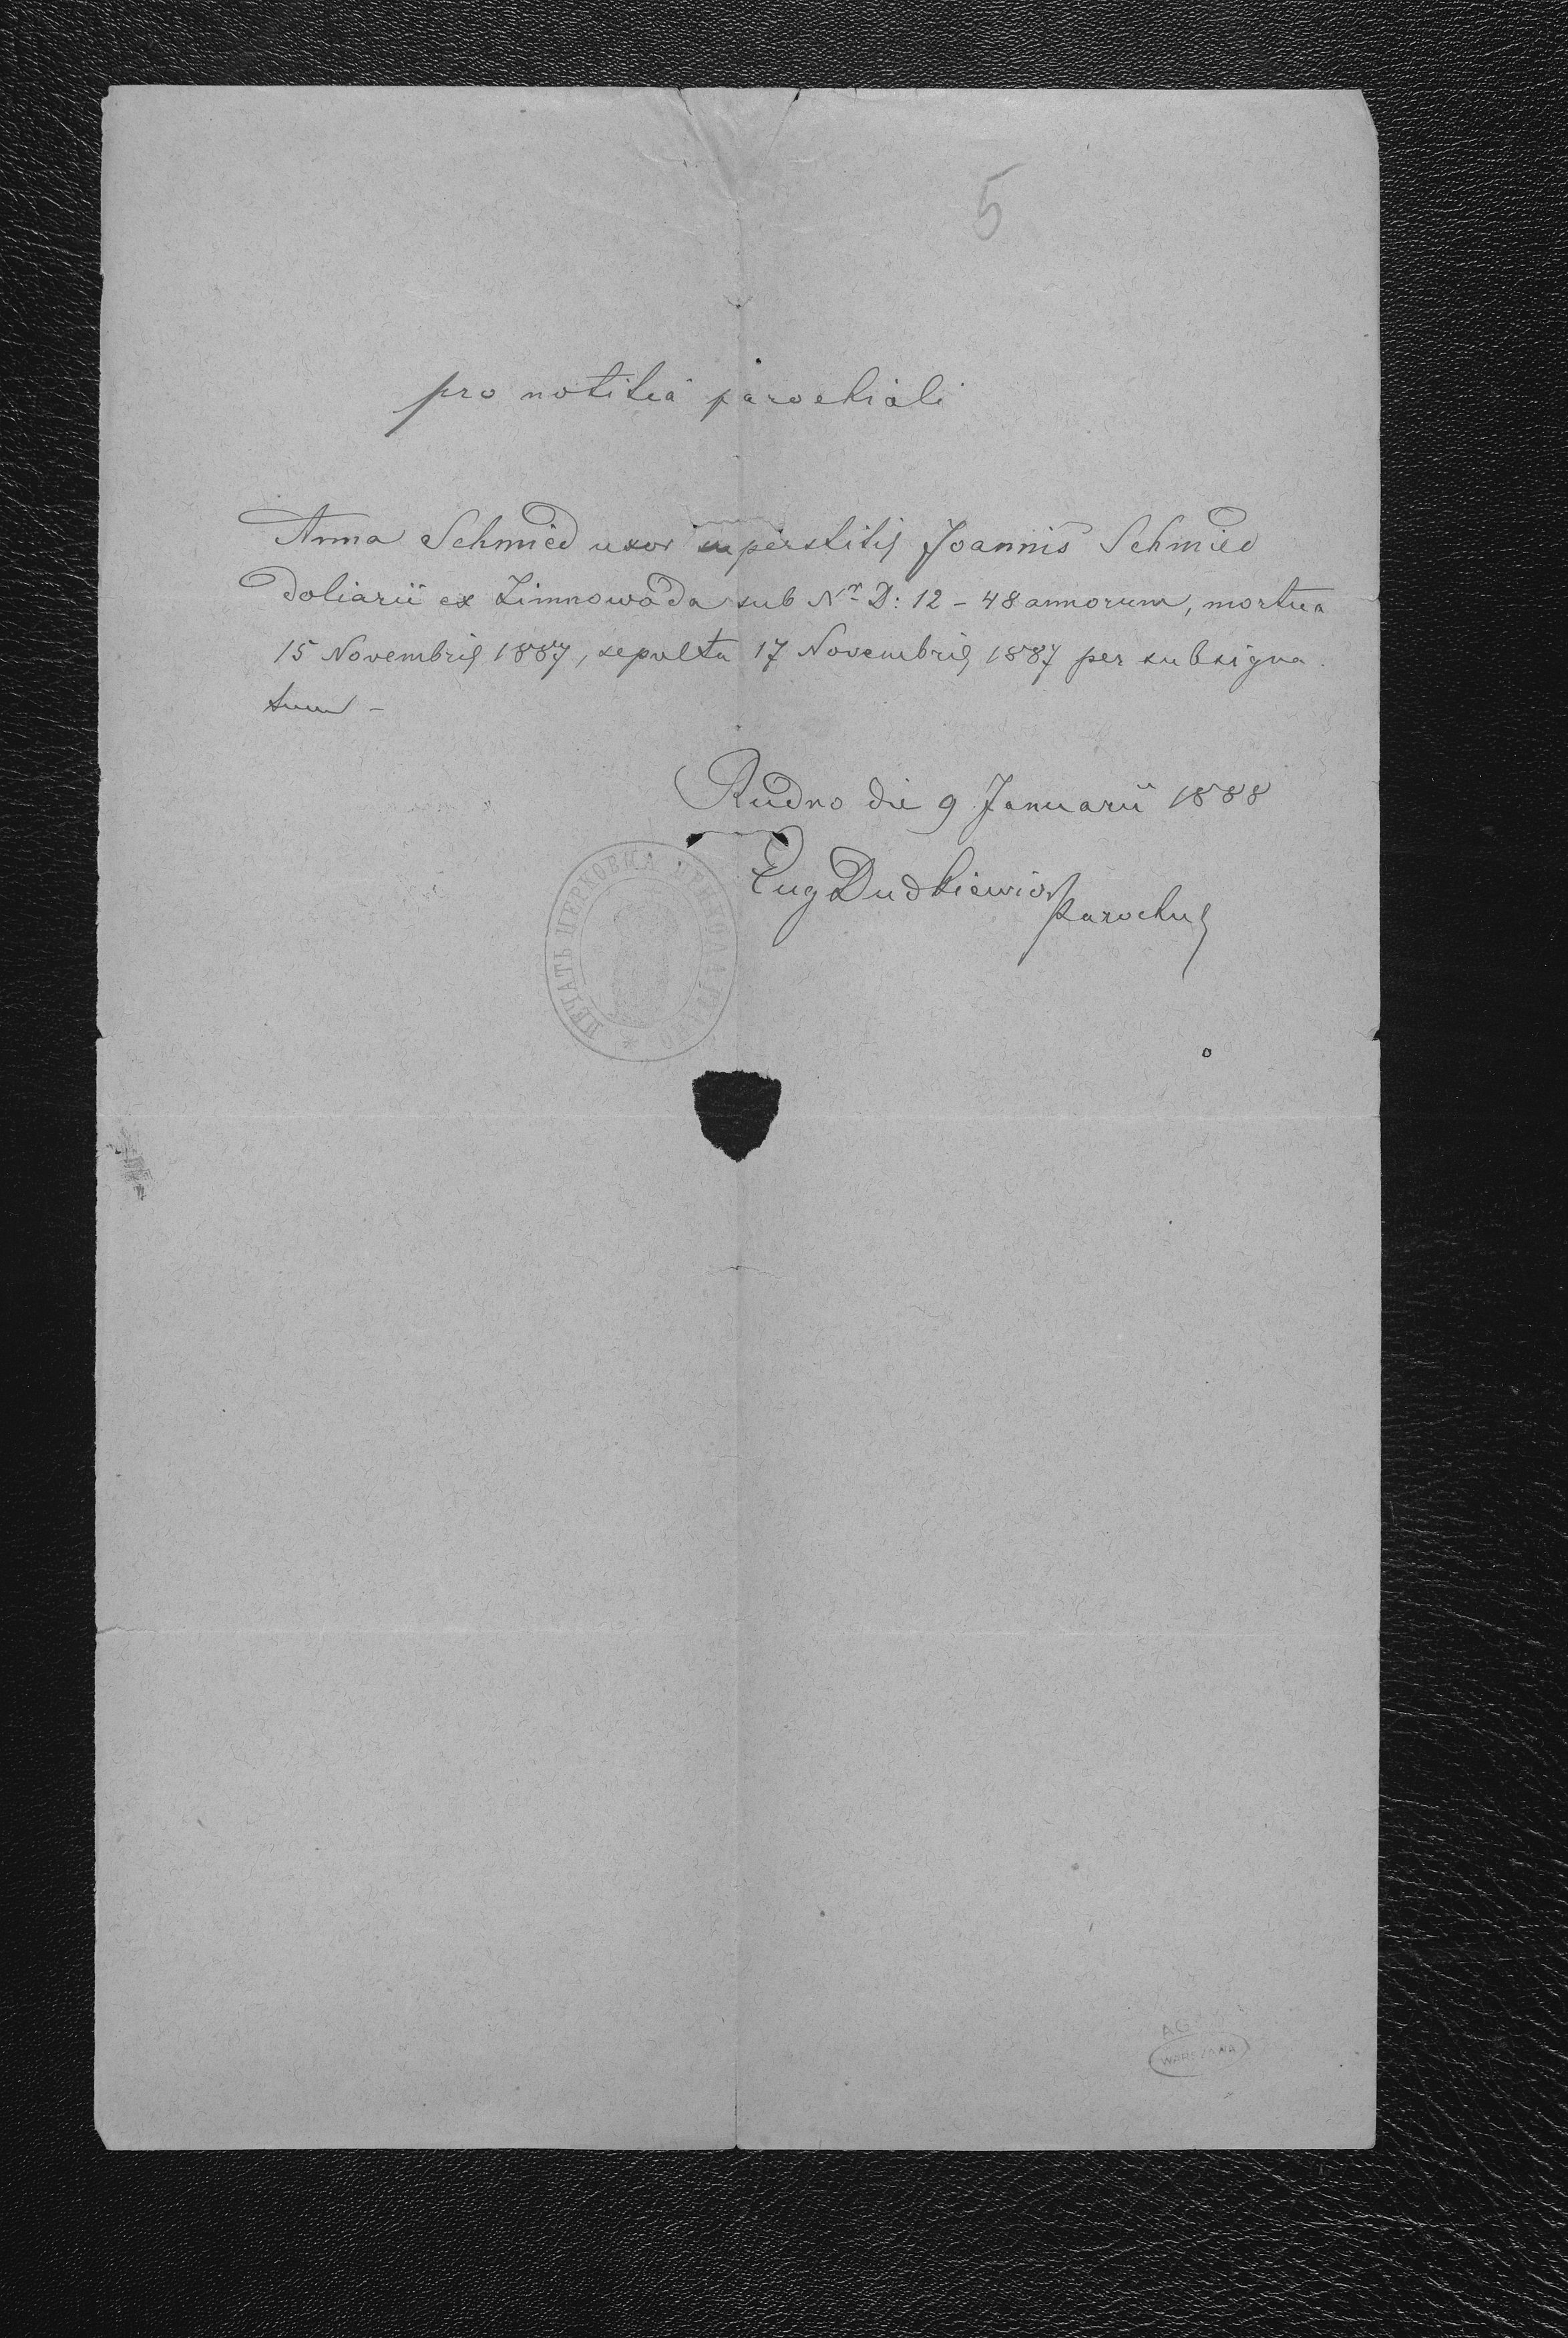 5
pro notitia parochiali
Anna Schmied uxor superstitis Joannis Schmied
doliarii ex Zimnowada sub Nr D: 12 - 48 annorum, mortua
15 Novembris 1887, sepulta 17 Novembris 1887 per subsigna-
tum -
Rudno die 9 Januarii 1888
Eug Dudkiewicz
parochus
ПЕЧАТЬ ЦЕРКОВНА
WARSZAWA